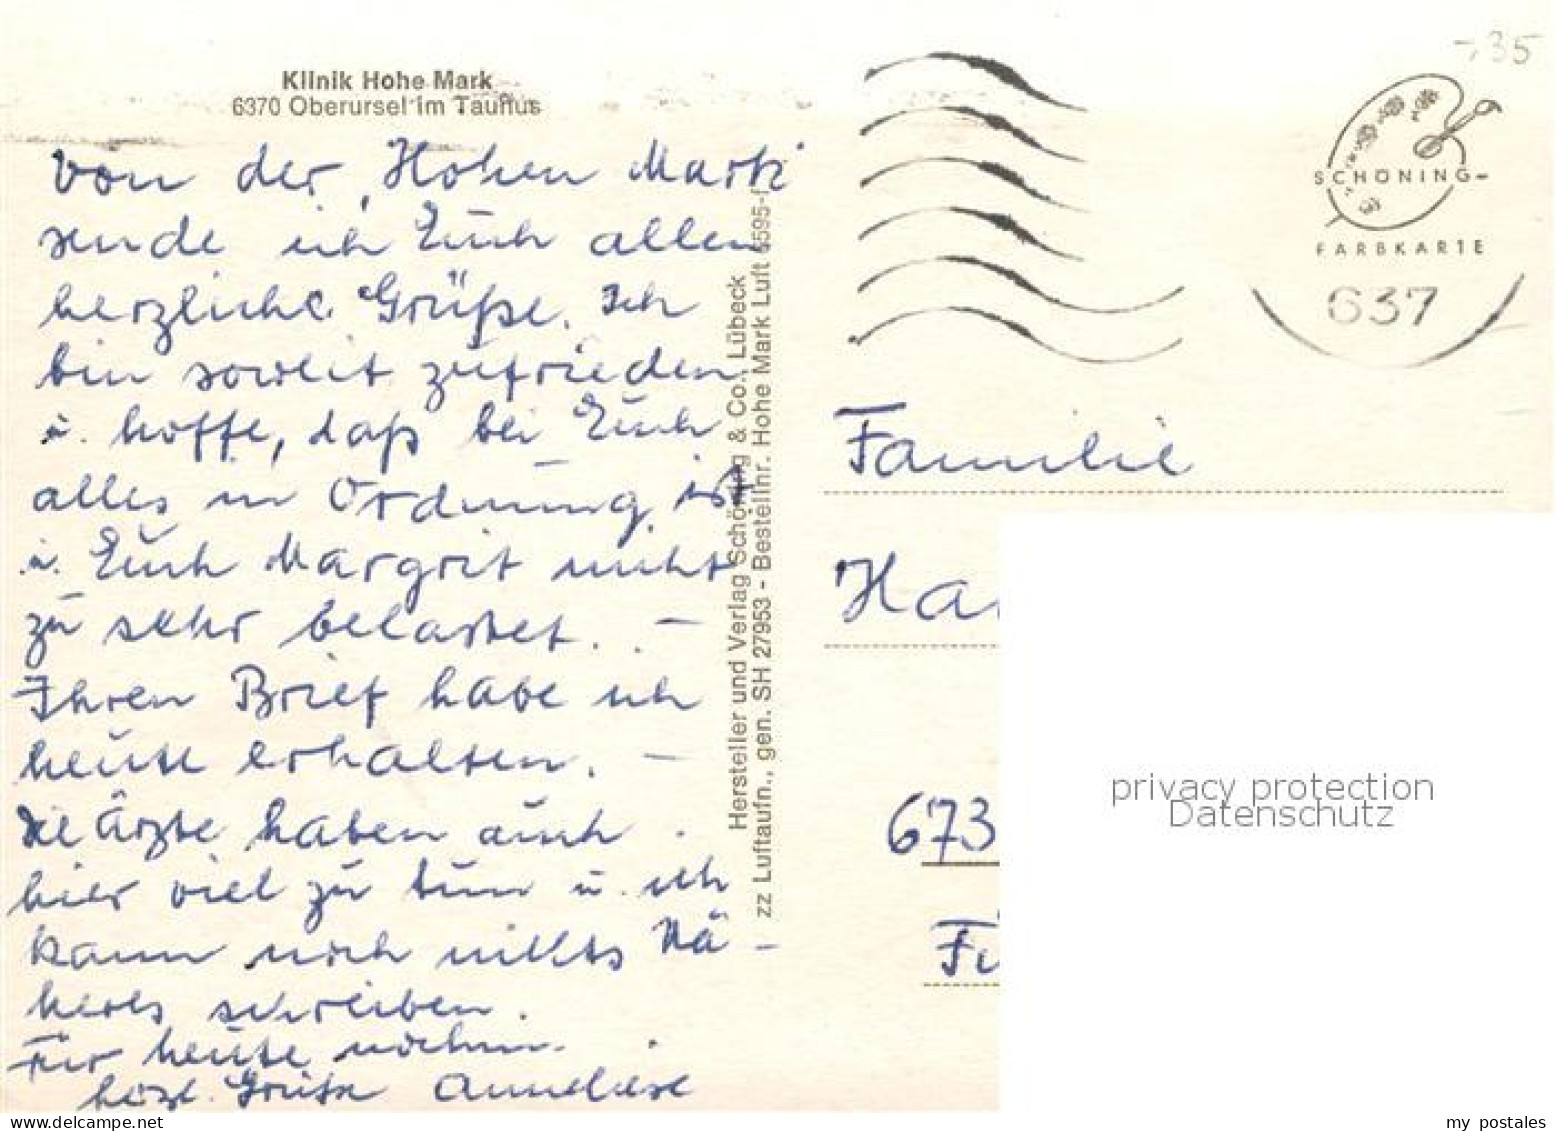 Klinik Hohe Mark
6370 Oberursel im Taunus
Von der "Hohen Mark"
sende ich Euch allen
herzliche Grüße. Ich
bin soweit zufrieden
u. hoffe, daß bei Euch
alles in Ordnung ist
u. Euch Margrit nicht
zu sehr belastet. –
Ihren Brief habe ich
heute erhalten. –
Die Ärzte haben auch
hier viel zu tun u. ich
kann noch nichts Nä-
heres schreiben.
Für heute nochm.
herzl. Grüße Anneliese
Hersteller und Verlag Schöning & Co., Lübeck
zz Luftaufn., gen. SH 27953 - Bestellnr. Hohe Mark Luft
-,35
SCHÖNING-
FARBKARTE
637
Familie
673
privacy protection
Datenschutz
my postales